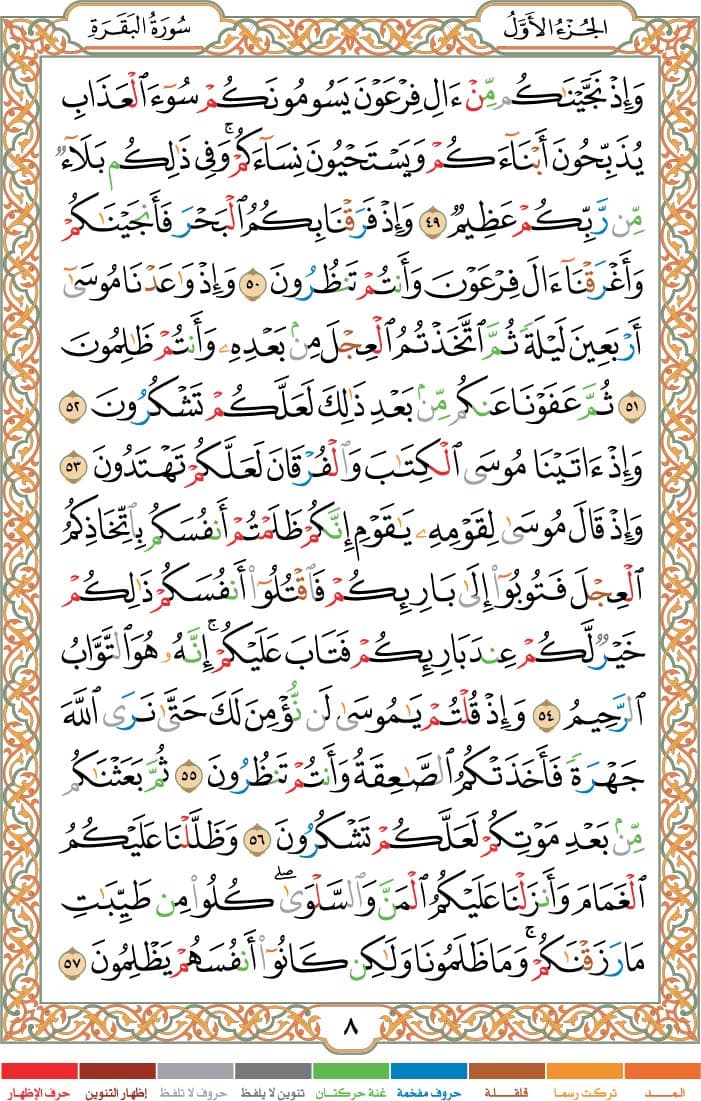 الجُزْءُ الأَوَّلُ
سُورَةُ البَقَرَةِ
وَإِذْ نَجَّيْنَٰكُم مِّنْ ءَالِ فِرْعَوْنَ يَسُومُونَكُمْ سُوٓءَ ٱلْعَذَابِ
يُذَبِّحُونَ أَبْنَآءَكُمْ وَيَسْتَحْيُونَ نِسَآءَكُمْ ۚ وَفِى ذَٰلِكُم بَلَآءٌ
مِّن رَّبِّكُمْ عَظِيمٌ ٤٩ وَإِذْ فَرَقْنَا بِكُمُ ٱلْبَحْرَ فَأَنجَيْنَٰكُمْ
وَأَغْرَقْنَآ ءَالَ فِرْعَوْنَ وَأَنتُمْ تَنظُرُونَ ٥٠ وَإِذْ وَٰعَدْنَا مُوسَىٰٓ
أَرْبَعِينَ لَيْلَةً ثُمَّ ٱتَّخَذْتُمُ ٱلْعِجْلَ مِنۢ بَعْدِهِۦ وَأَنتُمْ ظَٰلِمُونَ
٥١ ثُمَّ عَفَوْنَا عَنكُم مِّنۢ بَعْدِ ذَٰلِكَ لَعَلَّكُمْ تَشْكُرُونَ ٥٢
وَإِذْ ءَاتَيْنَا مُوسَى ٱلْكِتَٰبَ وَٱلْفُرْقَانَ لَعَلَّكُمْ تَهْتَدُونَ ٥٣
وَإِذْ قَالَ مُوسَىٰ لِقَوْمِهِۦ يَٰقَوْمِ إِنَّكُمْ ظَلَمْتُمْ أَنفُسَكُم بِٱتِّخَاذِكُمُ
ٱلْعِجْلَ فَتُوبُوٓا۟ إِلَىٰ بَارِئِكُمْ فَٱقْتُلُوٓا۟ أَنفُسَكُمْ ذَٰلِكُمْ
خَيْرٌ لَّكُمْ عِندَ بَارِئِكُمْ فَتَابَ عَلَيْكُمْ ۚ إِنَّهُۥ هُوَ ٱلتَّوَّابُ
ٱلرَّحِيمُ ٥٤ وَإِذْ قُلْتُمْ يَٰمُوسَىٰ لَن نُّؤْمِنَ لَكَ حَتَّىٰ نَرَى ٱللَّهَ
جَهْرَةً فَأَخَذَتْكُمُ ٱلصَّٰعِقَةُ وَأَنتُمْ تَنظُرُونَ ٥٥ ثُمَّ بَعَثْنَٰكُم
مِّنۢ بَعْدِ مَوْتِكُمْ لَعَلَّكُمْ تَشْكُرُونَ ٥٦ وَظَلَّلْنَا عَلَيْكُمُ
ٱلْغَمَامَ وَأَنزَلْنَا عَلَيْكُمُ ٱلْمَنَّ وَٱلسَّلْوَىٰ ۖ كُلُوا۟ مِن طَيِّبَٰتِ
مَا رَزَقْنَٰكُمْ ۚ وَمَا ظَلَمُونَا وَلَٰكِن كَانُوٓا۟ أَنفُسَهُمْ يَظْلِمُونَ ٥٧
٨
المــــد تركت رسما قلقـــلة حروف مفخمة غنة حركتـان تنوين لا يلفظ حروف لا تلفظ إظهار التنوين حرف الإظهار